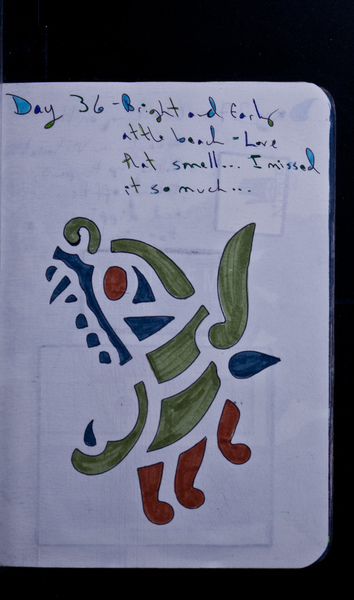 Day 36 - Bright and Early
at the beach - Love
that smell... I missed
it so much...